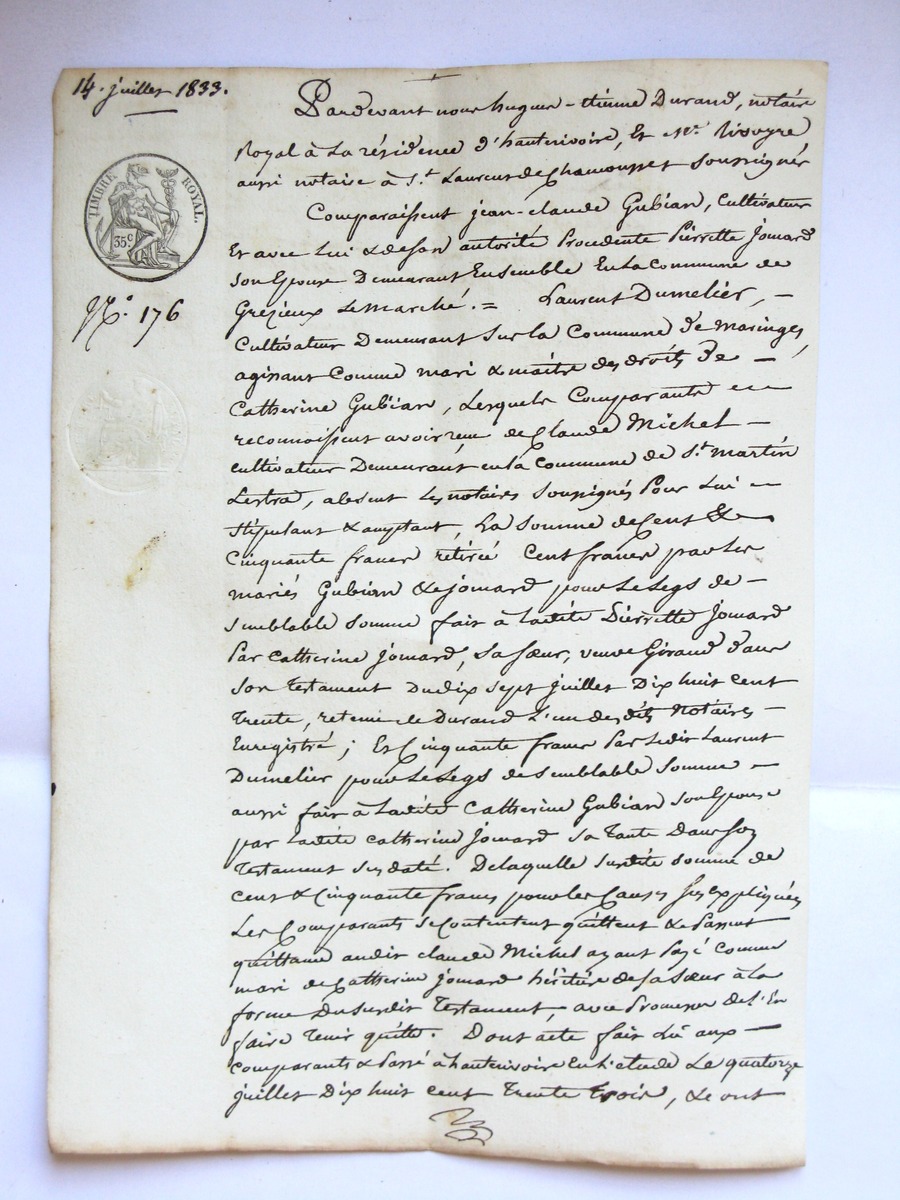 14. juillet 1833.
Pardevant nous hugues-étienne Durand, notaire
Royal à La résidence d'hauterivoire, Et Me. Rivoyre
aussi notaire à St. Laurent de Chamousset soussignés
Comparaissent jean-claude Gubian, Cultivateur
Et avec Lui & de son autorité Procédente Pierrette Jomard
son Epouse Demeurant Ensemble En La Commune de
Grezieux Le marché. = Laurent Dumelier, —
Cultivateur Demeurant sur La Commune de maringes,
agissant Comme mari & maître des droits De —
Catherine Gubian, Lesquels Comparants —
reconnoissent avoir reçu de Claude Michel —
cultivateur Demeurant en La Commune de St. martin
Lestra, absent Les notaires soussignés Pour Lui —
stipulant & acceptant, La somme de Cent &
Cinquante francs retirée Cent francs par Les
mariés Gubian & Jomard pour Le Legs de —
semblable somme fait à Ladite Pierrette Jomard
Par Catherine Jomard, sa sœur, veuve Giraud dans
son Testament Du dix sept juillet Dix huit cent
Trente, retenu De Durand L'un des dits Notaires —
Enregistré ; Et Cinquante francs Par Ledit Laurent
Dumelier pour Le Legs de semblable somme —
aussi fait à Ladite Catherine Gubian son Epouse
par Ladite Catherine Jomard sa Tante Dans son
Testament susdaté. De laquelle susdite somme de
cent & Cinquante francs pour les Causes sus expliquées
Les Comparants se Contentent quittent & Passent
quittance audit claude Michel ayant Payé comme
mari de Catherine jomard héritière de sa sœur à la
forme Du susdit Testament, avec Promesse de L'En
faire Tenir quitte. Dont acte fait Lû aux —
comparants & Passé à hauterivoire En L'étude Le quatorze
juillet Dix huit cent Trente trois, & ont
TIMBRE ROYAL.
35 c.
No. 176